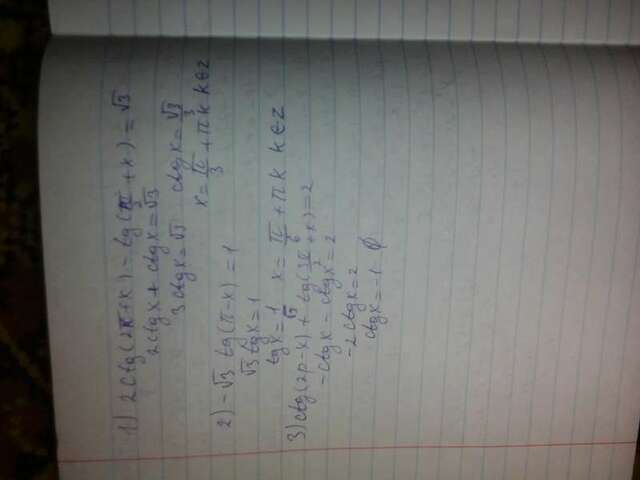 1) 2ctg(2π+x) - tg(π/2 + x) = √3
2ctgx + ctgx = √3
3ctgx = √3 ctgx = √3/3
x = π/3 + πk k∈z
2) -√3 tg(π-x) = 1
√3 tgx = 1
tgx = 1/√3 x = π/6 + πk k∈z
3) ctg(2p-x) + tg(3π/2 + x) = 2
-ctgx = ctgx = 2
-2ctgx = 2
ctgx = -1 ∅